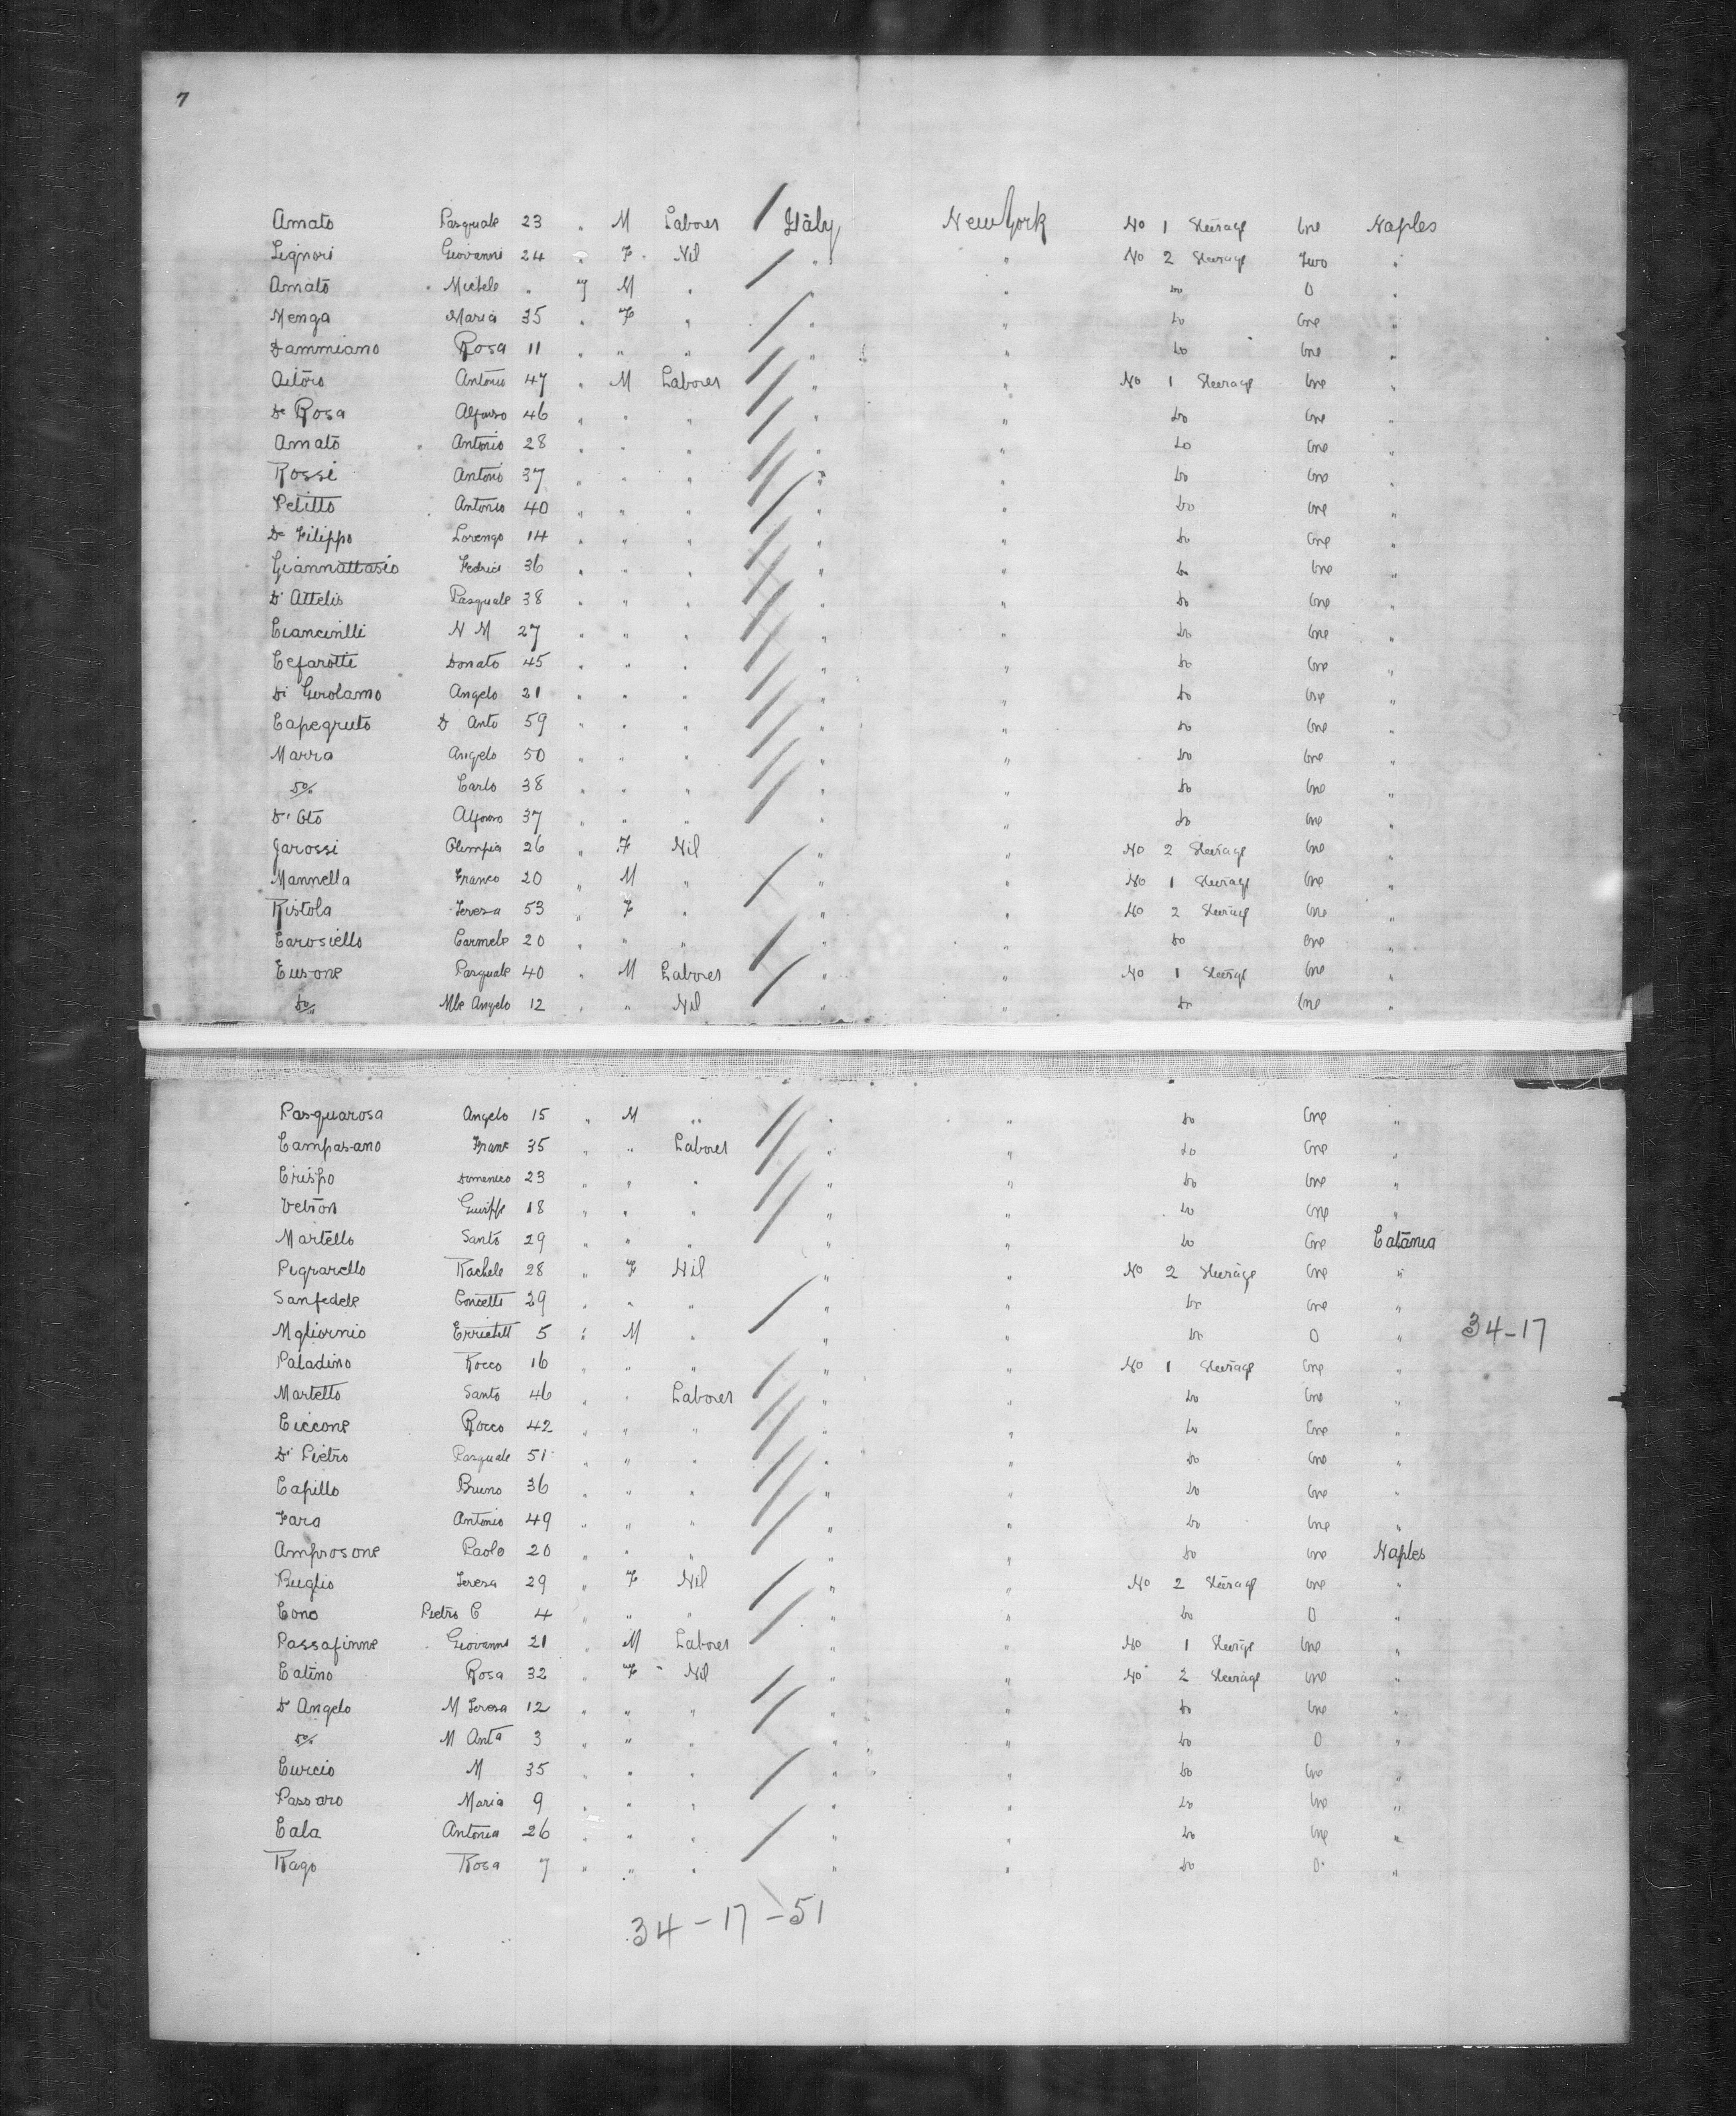 7
Amato Pasquale 23 " M Laborer Italy New York No 1 Steerage One Naples
Lignori Giovanni 24 " F Nil " " No 2 Steerage Two "
Amato " Michele " 7 M " " do 0 "
Menga Maria 35 " F " " " do One "
Dammiano Rosa 11 " " " " " do One "
Antonio 47 " M Laborer " " No 1 Steerage One "
De Rosa Alfonso 46 " " " " " do One "
Amato " Antonio 28 " " " " " do One "
Rossi Antonio 37 " " " " " do One "
Petitto Antonio 40 " " " " " do One "
De Filippo Lorenzo 14 " " " " " do One "
Giannattasio Fedrico 36 " " " " " do One "
D' Attelis Pasquale 38 " " " " " do One "
Ciancirilli N M 27 " " " " " do One "
Cefarotti Donato 45 " " " " " do One "
Di Girolamo Angelo 21 " " " " " do One "
Capegruto D Anto 59 " " " " " do One "
Marra Angelo 50 " " " " " do One "
do Carlo 38 " " " " " do One "
Alfonso 37 " " " " " do One "
Jarossi Olimpia 26 " F Nil " " No 2 Steerage One "
Mannella Franco 20 " M " " " No 1 Steerage One "
Ristola Teresa 53 " F " " " No 2 Steerage One "
Carosiello Carmela 20 " " " " " do One "
Eusone Pasquale 40 " M Laborer " " No 1 Steerage One "
do Angelo 12 " " Nil " " do One "
Pasquarosa Angelo 15 " M " " " do One "
Campasano Franc 35 " " Laborer " " do One "
Crispo Domenico 23 " " " " " do One "
Vetron Guiseppe 18 " " " " " do One "
Martello Santo 29 " " " " " do One Catania
Pignarello Rachele 28 " F Nil " " No 2 Steerage One "
Sanfedele Concetta 29 " " " " " do One "
Mgliornio Errichett 5 " M " " " do 0 " 34-17
Paladino Rocco 16 " " " " " No 1 Steerage One "
Martello Santo 46 " " Laborer " " do One "
Ciccone Rocco 42 " " " " " do One "
Di Pietro Pasquale 51 " " " " " do One "
Capillo Bruno 36 " " " " " do One "
Fara Antonio 49 " " " " " do One "
Amprosone Paolo 20 " " " " " do One Naples
Buglio Teresa 29 " F Nil " " No 2 Steerage One "
Cono Pietro C 4 " " " " " do 0 "
Passafinne Giovanni 21 " M Laborer " " No 1 Steerage One "
Catino Rosa 32 " F Nil " " No 2 Steerage One "
D' Angelo M Teresa 12 " " " " " do One "
do M Anta 3 " " " " " do 0 "
Curcio M 35 " " " " " do One "
Passaro Maria 9 " " " " " do One "
Cala Antonia 26 " " " " " do One "
Rago Rosa 7 " " " " " do 0 "
34-17-51